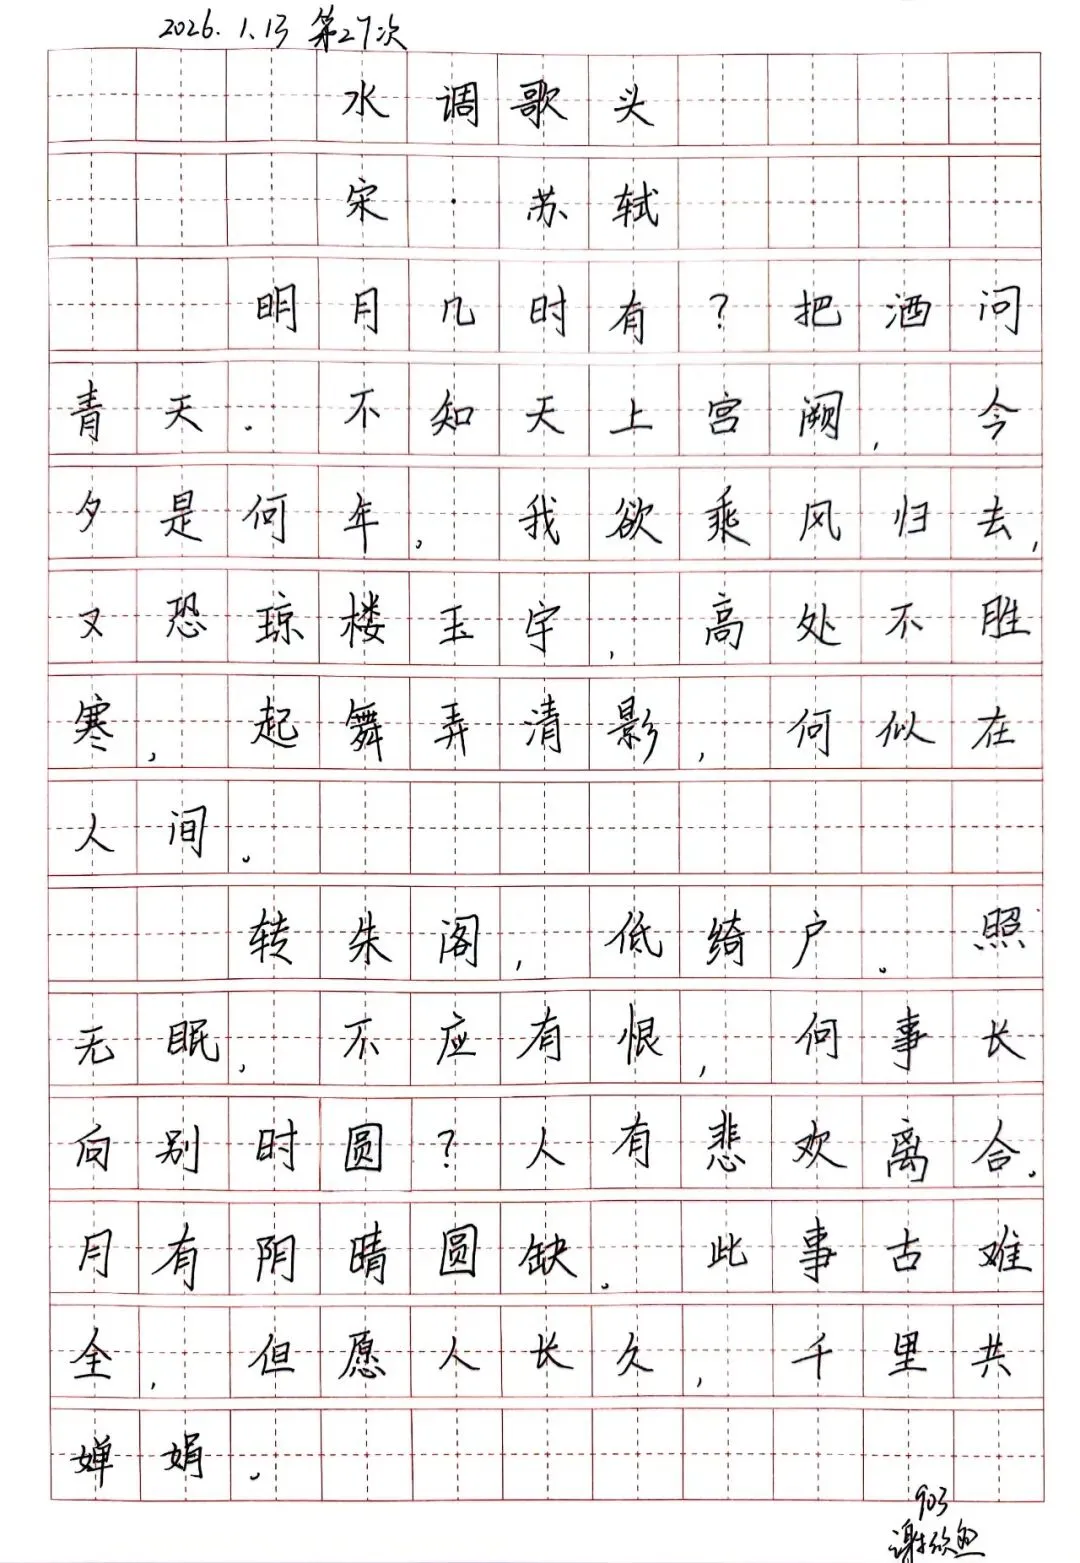 2026.1.13 第27次
水调歌头
宋·苏轼
明月几时有?把酒问
青天。不知天上宫阙,今
夕是何年。我欲乘风归去,
又恐琼楼玉宇,高处不胜
寒,起舞弄清影,何似在
人间。
转朱阁,低绮户。照
无眠,不应有恨,何事长
向别时圆?人有悲欢离合。
月有阴晴圆缺。此事古难
全,但愿人长久,千里共
婵娟。
903
谢欣